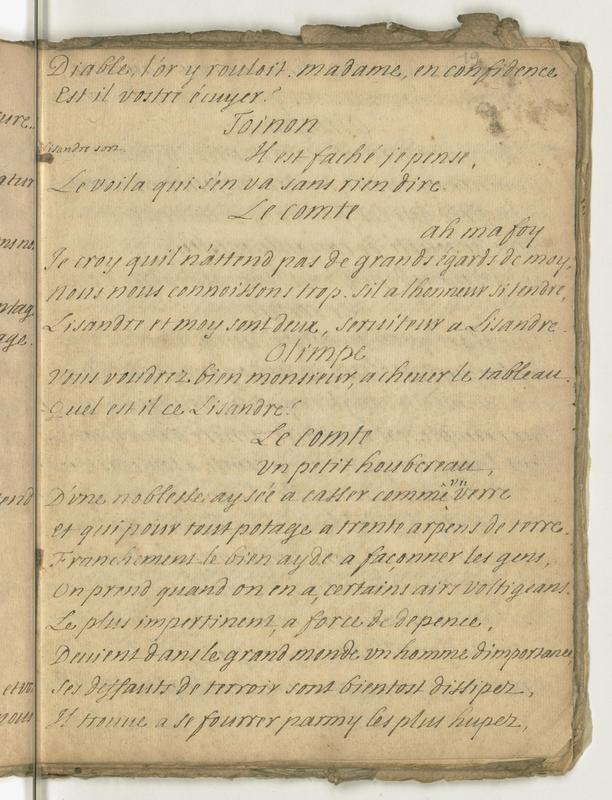 Diable, l'or y rouloit. madame, en confidence
Est il vostre écuyer?
Toinon
Lisandre sort.
Il est faché je pense,
Le voila qui s'en va sans rien dire.
Le comte
ah ma foy
Je croy quil n'attend pas de grands égards de moy,
nous nous connoissons trop. s'il a lhonneur si tendre,
Lisandre et moy sont deux, seruiteur a Lisandre.
Olimpe
Vous voudrez bien monsieur, acheuer le tableau.
Quel est il ce Lisandre?
Le comte
Vn petit houbereau,
D'vne noblesse aysée a casser comme vn verre
et qui pour tout potage a trente arpens de terre.
Franchement le bien ayde a façonner les gens,
On prend quand on en a, certains airs voltigeans.
Le plus impertinent, a force de depence,
Deuient dans le grand monde vn homme dimportance,
Ses deffauts de terroir sont bientost dissipez,
Il trouue a se fourrer parmy les plus hupez,
ure.
atur
ntag
age.
end
et vo
nous